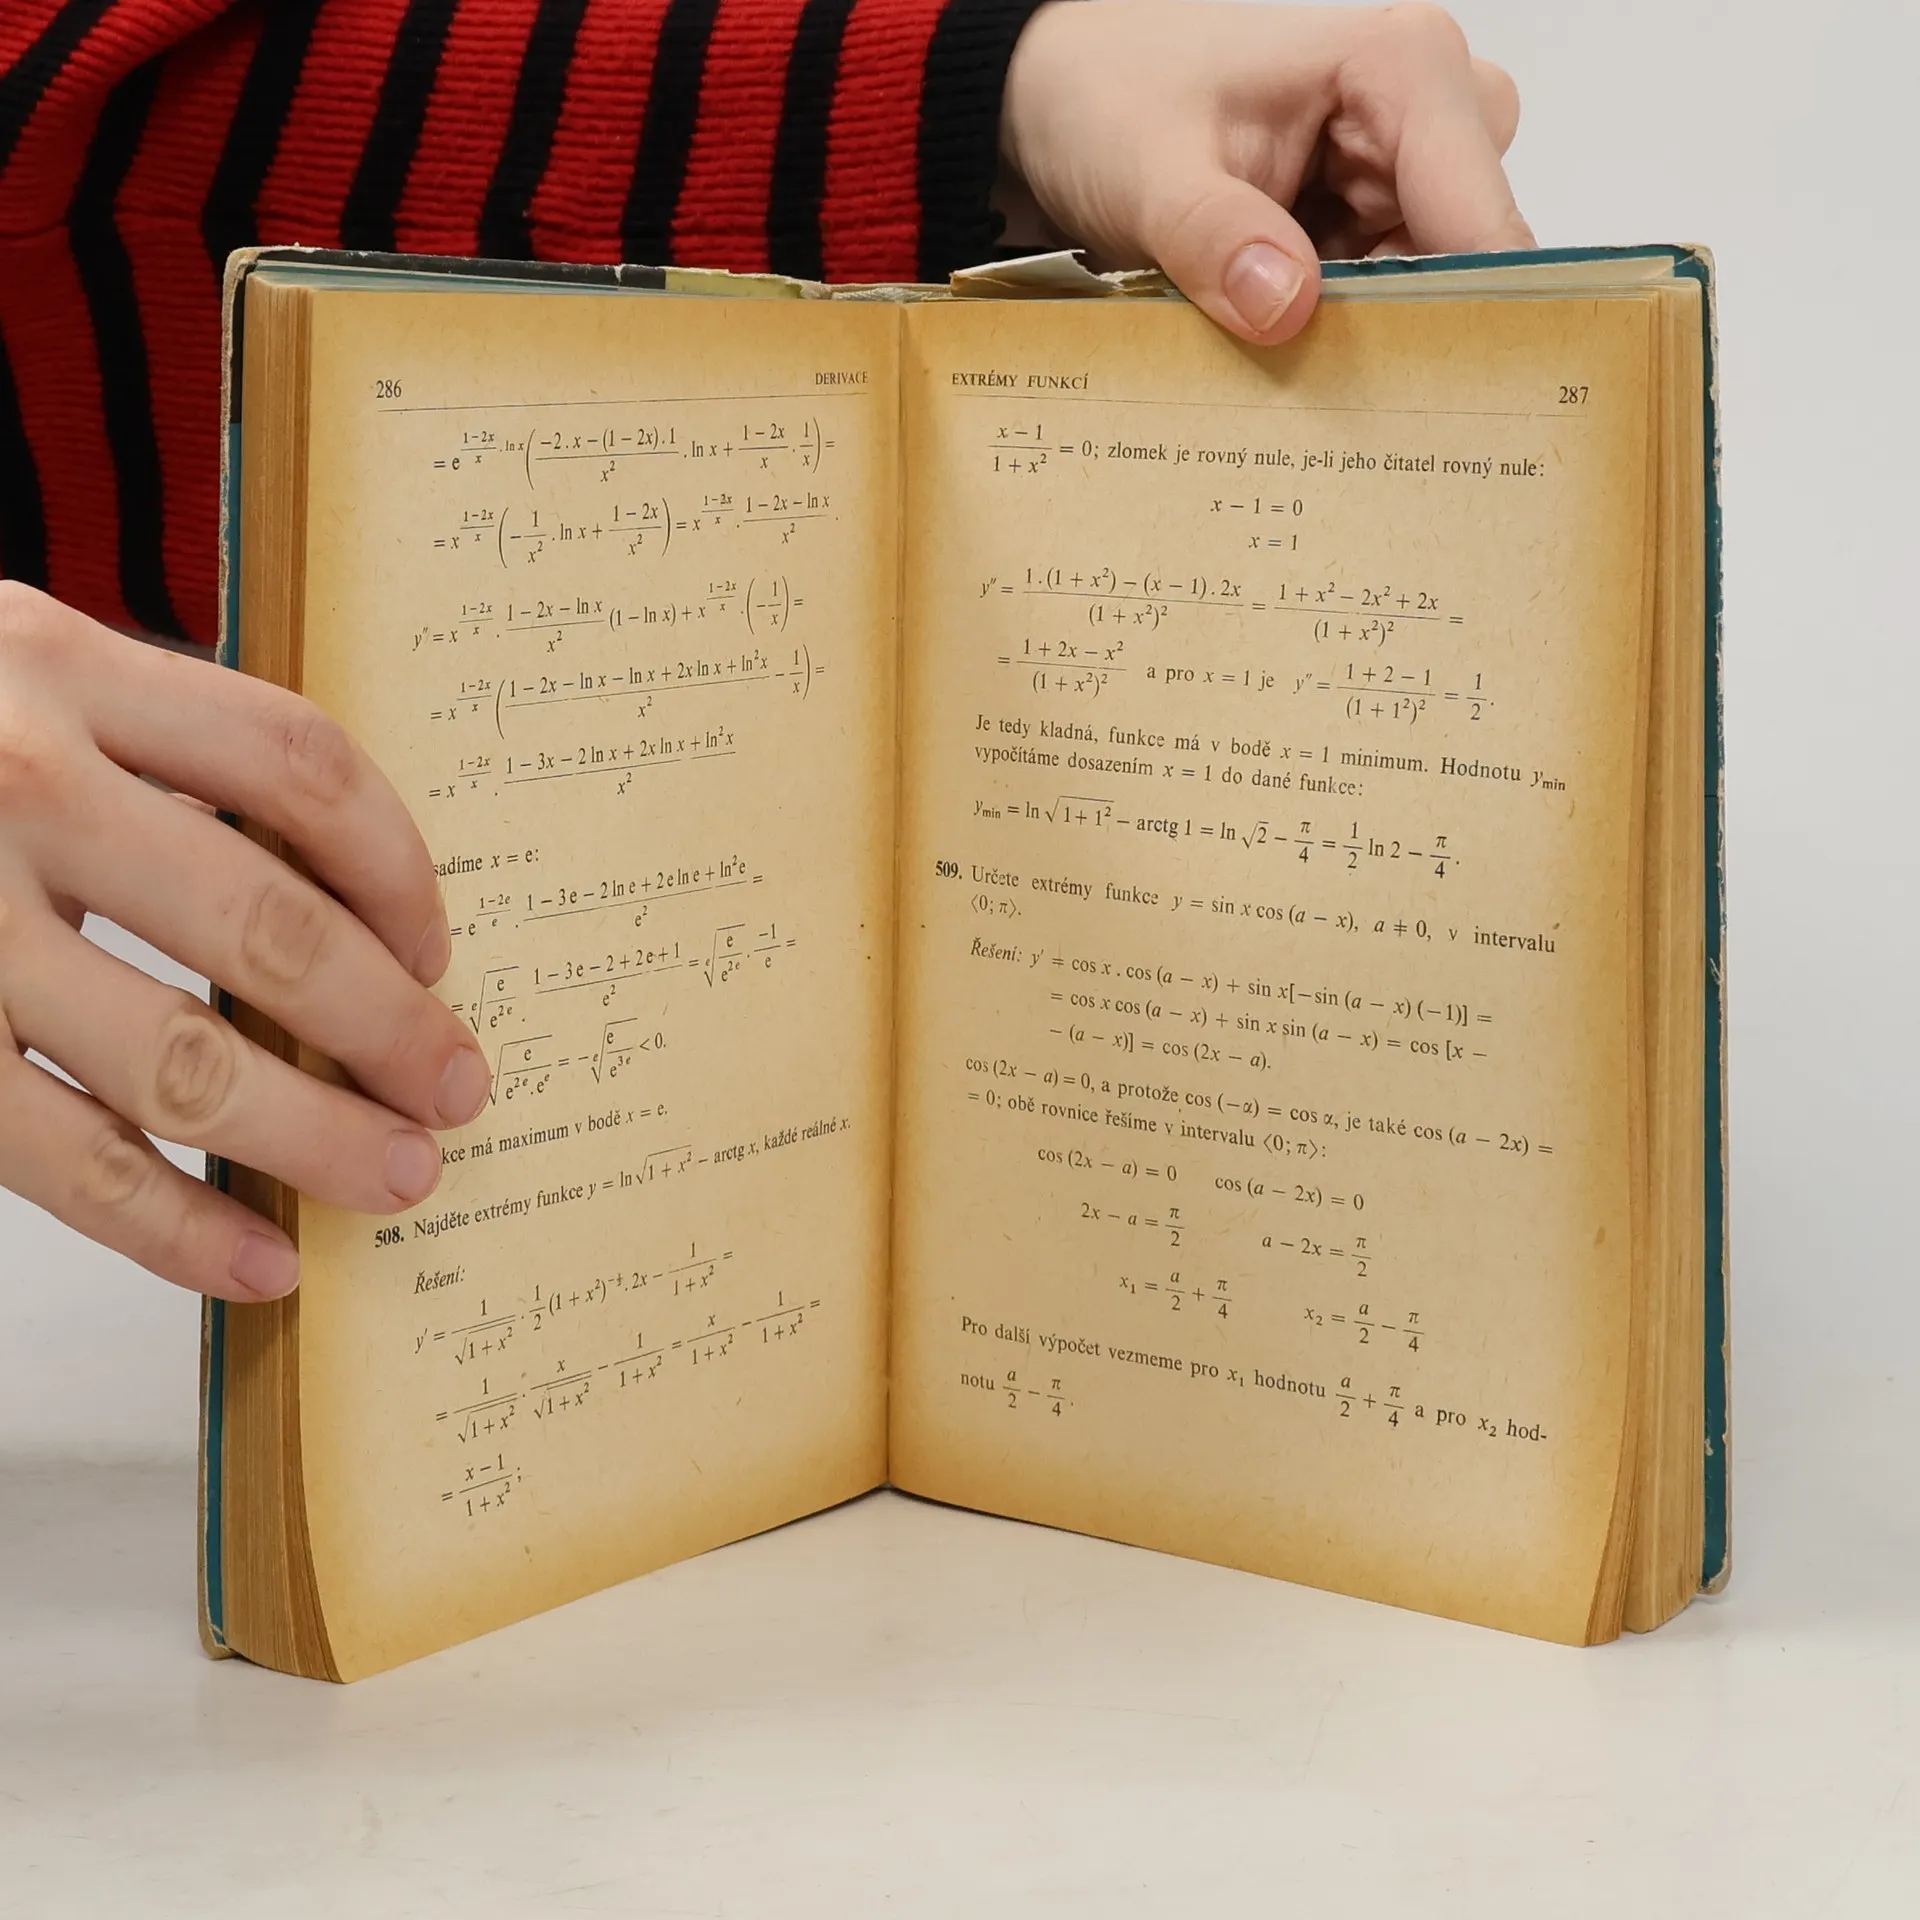 286 DERIVACE
= e^{\frac{1-2x}{x} . ln x} \left( \frac{-2 . x − (1 − 2x) . 1}{x^2} . ln x + \frac{1 − 2x}{x} . \frac{1}{x} \right) =
= x^{\frac{1-2x}{x}} \left( −\frac{1}{x^2} . ln x + \frac{1 − 2x}{x^2} \right) = x^{\frac{1-2x}{x}} . \frac{1 − 2x − ln x}{x^2} .
y″ = x^{\frac{1-2x}{x}} . \frac{1 − 2x − ln x}{x^2} (1 − ln x) + x^{\frac{1-2x}{x}} . \left( −\frac{1}{x} \right) =
= x^{\frac{1-2x}{x}} \left( \frac{1 − 2x − ln x − ln x + 2x ln x + ln^2 x}{x^2} − \frac{1}{x} \right) =
= x^{\frac{1-2x}{x}} . \frac{1 − 3x − 2 ln x + 2x ln x + ln^2 x}{x^2}
sadíme x = e:
= e^{\frac{1-2e}{e}} . \frac{1 − 3e − 2 ln e + 2e ln e + ln^2 e}{e^2} =
= \sqrt[e]{\frac{e}{e^{2e}}} . \frac{1 − 3e − 2 + 2e + 1}{e^2} = \sqrt[e]{\frac{e}{e^{2e}}} . \frac{−1}{e} =
\sqrt{\frac{e}{e^{2e} . e^e}} = −\sqrt[e]{\frac{e}{e^{3e}}} < 0.
kce má maximum v bodě x = e.
508. Najděte extrémy funkce y = ln \sqrt{1 + x^2} − arctg x, každé reálné x.
Řešení:
y′ = \frac{1}{\sqrt{1 + x^2}} . \frac{1}{2} (1 + x^2)^{−\frac{1}{2}} . 2x − \frac{1}{1 + x^2} =
= \frac{1}{\sqrt{1 + x^2}} . \frac{x}{\sqrt{1 + x^2}} − \frac{1}{1 + x^2} = \frac{x}{1 + x^2} − \frac{1}{1 + x^2} =
= \frac{x − 1}{1 + x^2} ;
EXTRÉMY FUNKCÍ 287
\frac{x − 1}{1 + x^2} = 0; zlomek je rovný nule, je-li jeho čitatel rovný nule:
x − 1 = 0
x = 1
y″ = \frac{1 . (1 + x^2) − (x − 1) . 2x}{(1 + x^2)^2} = \frac{1 + x^2 − 2x^2 + 2x}{(1 + x^2)^2} =
= \frac{1 + 2x − x^2}{(1 + x^2)^2} a pro x = 1 je y″ = \frac{1 + 2 − 1}{(1 + 1^2)^2} = \frac{1}{2} .
Je tedy kladná, funkce má v bodě x = 1 minimum. Hodnotu y_{min}
vypočítáme dosazením x = 1 do dané funkce:
y_{min} = ln \sqrt{1 + 1^2} − arctg 1 = ln \sqrt{2} − \frac{π}{4} = \frac{1}{2} ln 2 − \frac{π}{4} .
509. Určete extrémy funkce y = sin x cos (a − x), a ≠ 0, v intervalu
⟨0; π⟩.
Řešení: y′ = cos x . cos (a − x) + sin x[−sin (a − x) (−1)] =
= cos x cos (a − x) + sin x sin (a − x) = cos [x −
− (a − x)] = cos (2x − a).
cos (2x − a) = 0, a protože cos (−α) = cos α, je také cos (a − 2x) =
= 0; obě rovnice řešíme v intervalu ⟨0; π⟩:
cos (2x − a) = 0 cos (a − 2x) = 0
2x − a = \frac{π}{2} a − 2x = \frac{π}{2}
x_1 = \frac{a}{2} + \frac{π}{4} x_2 = \frac{a}{2} − \frac{π}{4}
Pro další výpočet vezmeme pro x_1 hodnotu \frac{a}{2} + \frac{π}{4} a pro x_2 hod-
notu \frac{a}{2} − \frac{π}{4} .